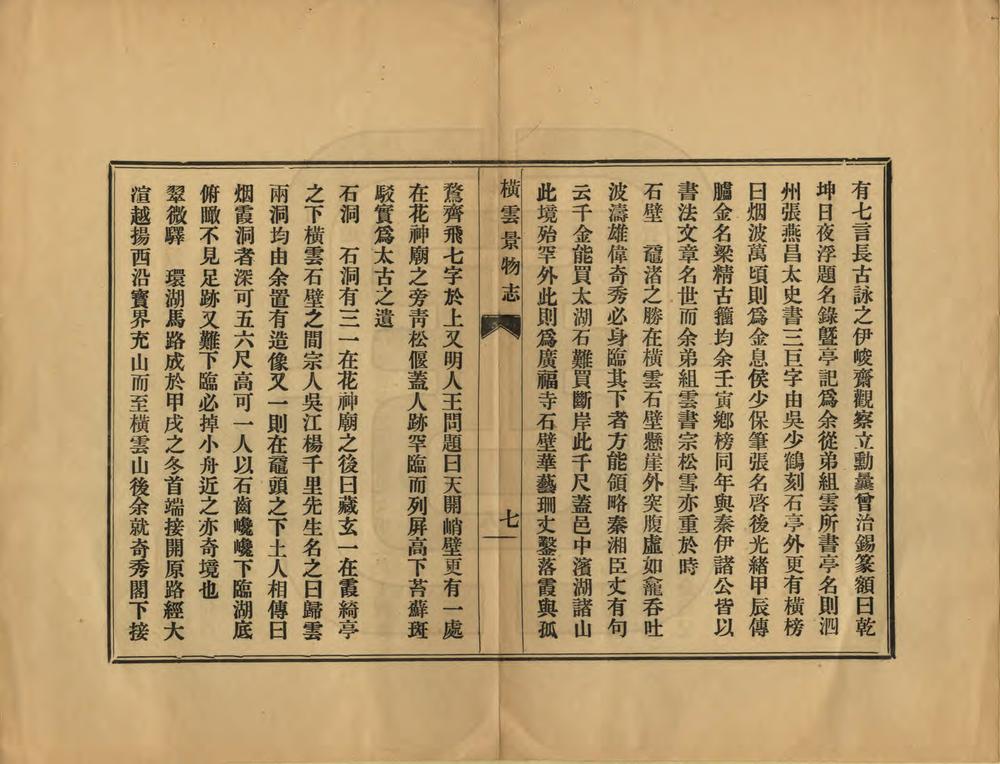 有七言長古詠之伊峻齋觀察立勳曩曾治錫篆額曰乾
坤日夜浮題名錄暨亭記爲余從弟組雲所書亭名則泗
州張燕昌太史書三巨字由吳少鶴刻石亭外更有橫榜
曰烟波萬頃則爲金息侯少保筆張名啓後光緒甲辰傳
臚金名梁精古籀均余壬寅鄉榜同年與秦伊諸公皆以
書法文章名世而余弟組雲書宗松雪亦重於時
石壁　黿渚之勝在橫雲石壁懸崖外突腹虛如龕吞吐
波濤雄偉奇秀必身臨其下者方能領略秦湘臣丈有句
云千金能買太湖石難買斷岸此千尺蓋邑中濱湖諸山
此境殆罕外此則爲廣福寺石壁華藝珊丈鑿落霞與孤
橫雲景物志
七
鶩齊飛七字於上又明人王問題曰天開峭壁更有一處
在花神廟之旁靑松偃蓋人跡罕臨而列屏高下苔蘚斑
駁實爲太古之遺
石洞　石洞有三一在花神廟之後曰藏玄一在霞綺亭
之下橫雲石壁之間宗人吳江楊千里先生名之曰歸雲
兩洞均由余置有造像又一則在黿頭之下土人相傳曰
烟霞洞者深可五六尺高可一人以石齒巉巉下臨湖底
俯瞰不見足跡又難下臨必掉小舟近之亦奇境也
翠微驛　環湖馬路成於甲戌之冬首端接開原路經大
渲越揚西沿寶界充山而至橫雲山後余就奇秀閣下接